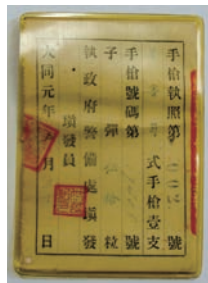 手槍執照第　　號
式手槍壹支
手槍號碼第　　號
子彈　　粒
執政府警備處填發
填發員
大同元年　月　日